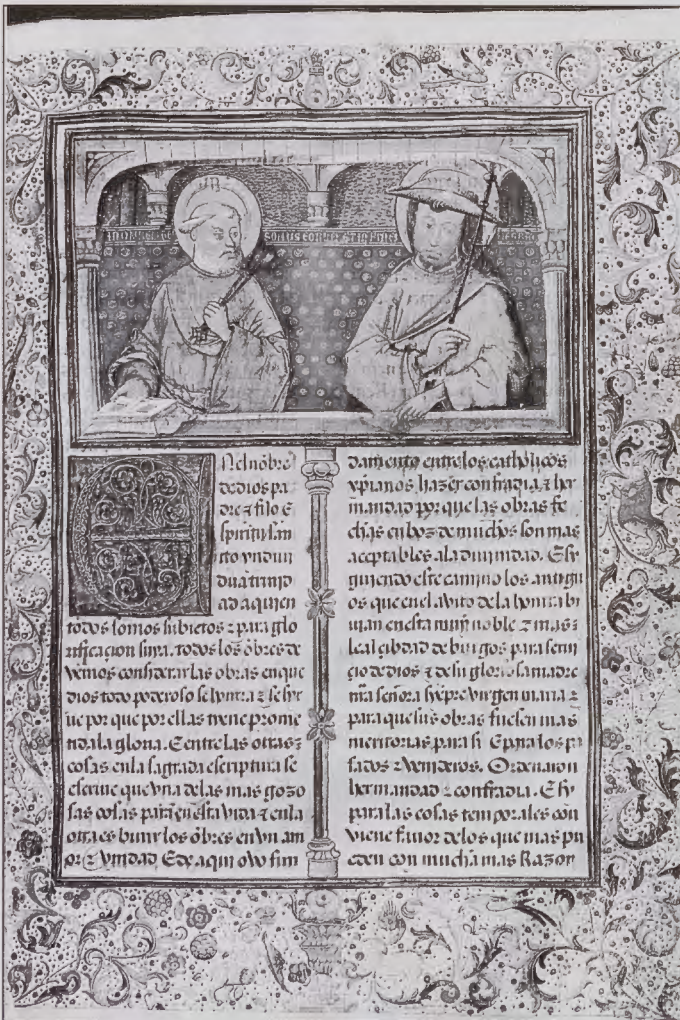 E
Nel nõbre
de dios pa
dre ⁊ fijo E
spiritu san
to yndiui
dua trinid
ad a quien
todos somos subietos ⁊ para glo
rificacion suya. todos los õbres de
vemos considerar las obras en que
dios todo poderoso se honrra ⁊ se sir
ue por que por ellas tiene prome
tida la gloria. E entre las otras
cosas en la sagrada escriptura se
escriue que vna delas mas gozo
sas cosas para en esta vida ⁊ en la
otra es biuir los õbres en vn am
or ⁊ vnidad. E de aqui ovo fun
damento entre los catholicos
xpianos hazer confradia ⁊ her
mandad por que las obras fe
chas en boz de muchos son mas
aceptables ala diuinidad. E sy
guiendo este camino los antigu
os que en el avito de la honrra bi
uian en esta muy noble ⁊ mas
leal cibdad de burgos para serui
çio de dios ⁊ de su gloriosa madre
nr̃a señora sienpre virgen maria ⁊
para que sus obras fuesen mas
meritorias para si E para los pa
sados ⁊ venideros. Ordenaron
hermandad ⁊ confradia. E sy
para las cosas temporales con
viene fauor delos que mas pu
eden con mucha mas Razon